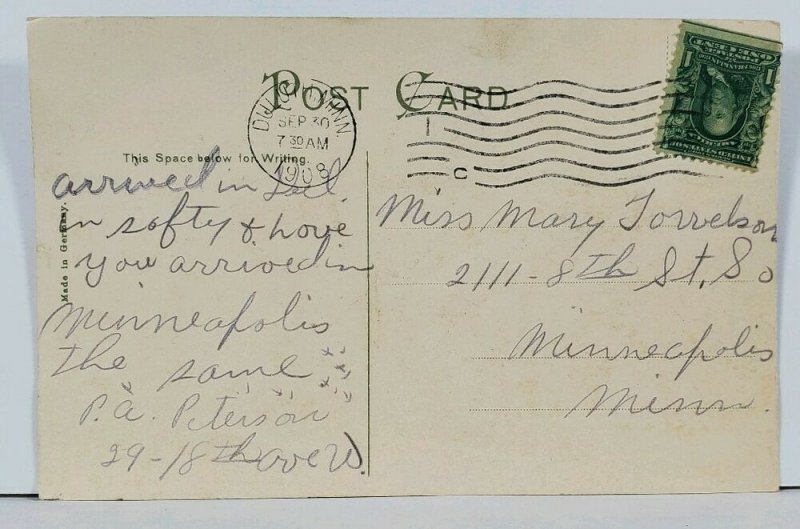 POST CARD
DULUTH, MINN.
SEP 30
7 30 AM
1908
1 C
This Space below for Writing.
Made in Germany.
arrived in
in safty & hove
you arrived in
Minneapolis
the same
P.A. Peterson
29-18th ave W.
Miss Mary Torrelson
2111-8th St, So
Minneapolis
Minn.